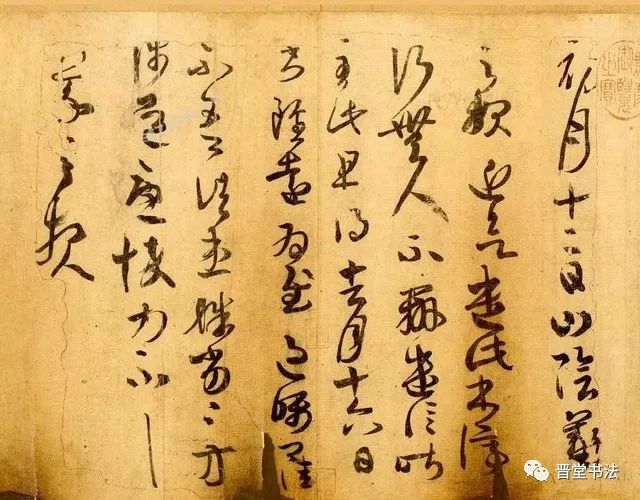 初月十二日山陰羲
之報近欲遣此書停
行無人不辦遣信昨
至此且得去月十六日
書雖遠為慰過囑
不吾諸患殊劣〻方
涉道憂悴力不具
羲之報
晋堂书法